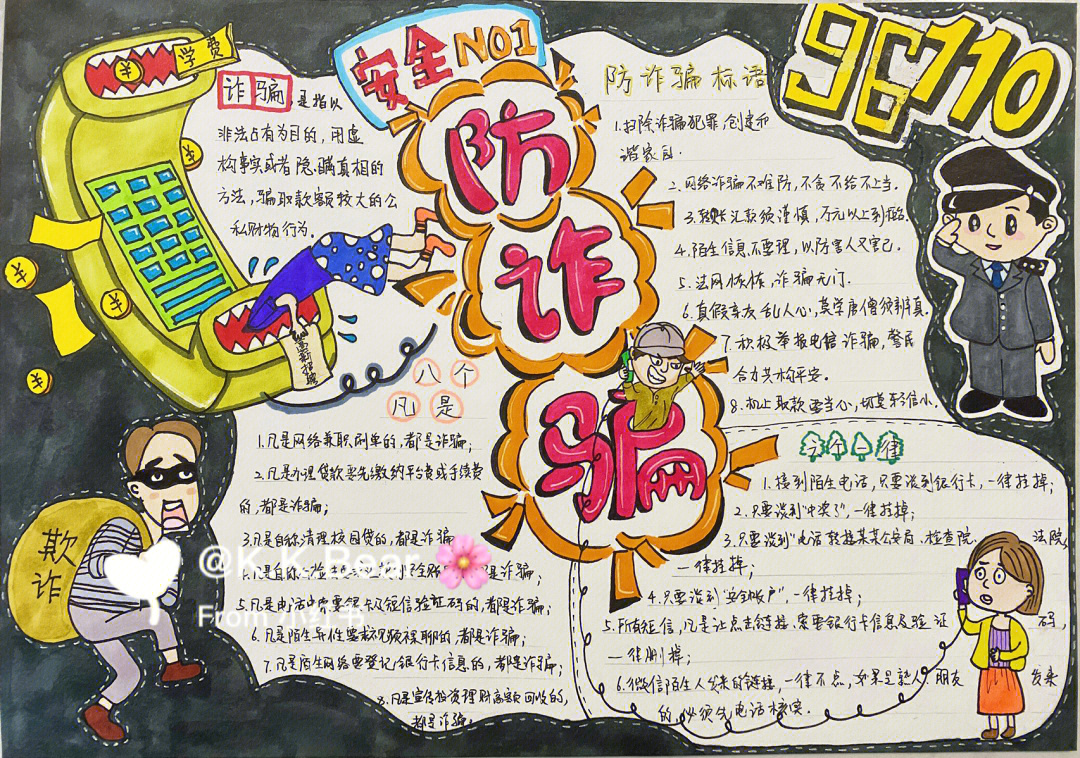 学费
安全NO1
96110
防诈骗
诈骗,是指以
非法占有为目的,用虚
构事实或者隐瞒真相的
方法,骗取款额较大的公
私财物行为.
高薪招聘
防诈骗标语
1.扫除诈骗犯罪,创建和
谐家园.
2.网络诈骗不难防,不贪不给不上当.
3.转账汇款须谨慎,
4.陌生信息不要理,以防害人又害己.
5.法网恢恢,诈骗无门.
6.真假亲友乱人心,莫学唐僧须辨真.
7.积极举报电信诈骗,警民
合力共构平安.
8.机上取款要当心,切莫轻信小.
八个
凡是
1.凡是网络兼职刷单的,都是诈骗;
2.凡是办理贷款要先缴纳平台费或手续费
的,都是诈骗;
3.凡是自称清理校园贷的,都是诈骗
是诈骗;
5.凡是电话中索要银行卡及短信验证码的,都是诈骗;
6.凡是陌生异性要求视频裸聊的,都是诈骗;
7.凡是陌生网络要登记银行卡信息的,都是诈骗;
8.凡是宣传投资理财高额回收的,
都是诈骗;
六个一律
1.接到陌生电话,只要谈到银行卡,一律挂掉;
2.只要谈到"中奖了",一律挂掉;
3.只要谈到"电话转接某某公安局、检查院、法院,
一律挂掉;
4.只要谈到"安全帐户",一律挂掉;
5.所有短信,凡是让点击链接、索要银行卡信息及验证码,
一律删掉;
6.微信陌生人发来的链接,一律不点,如果是熟人朋友发来
的,必须先电话核实.
欺诈
@K.K.Bear
From 小红书